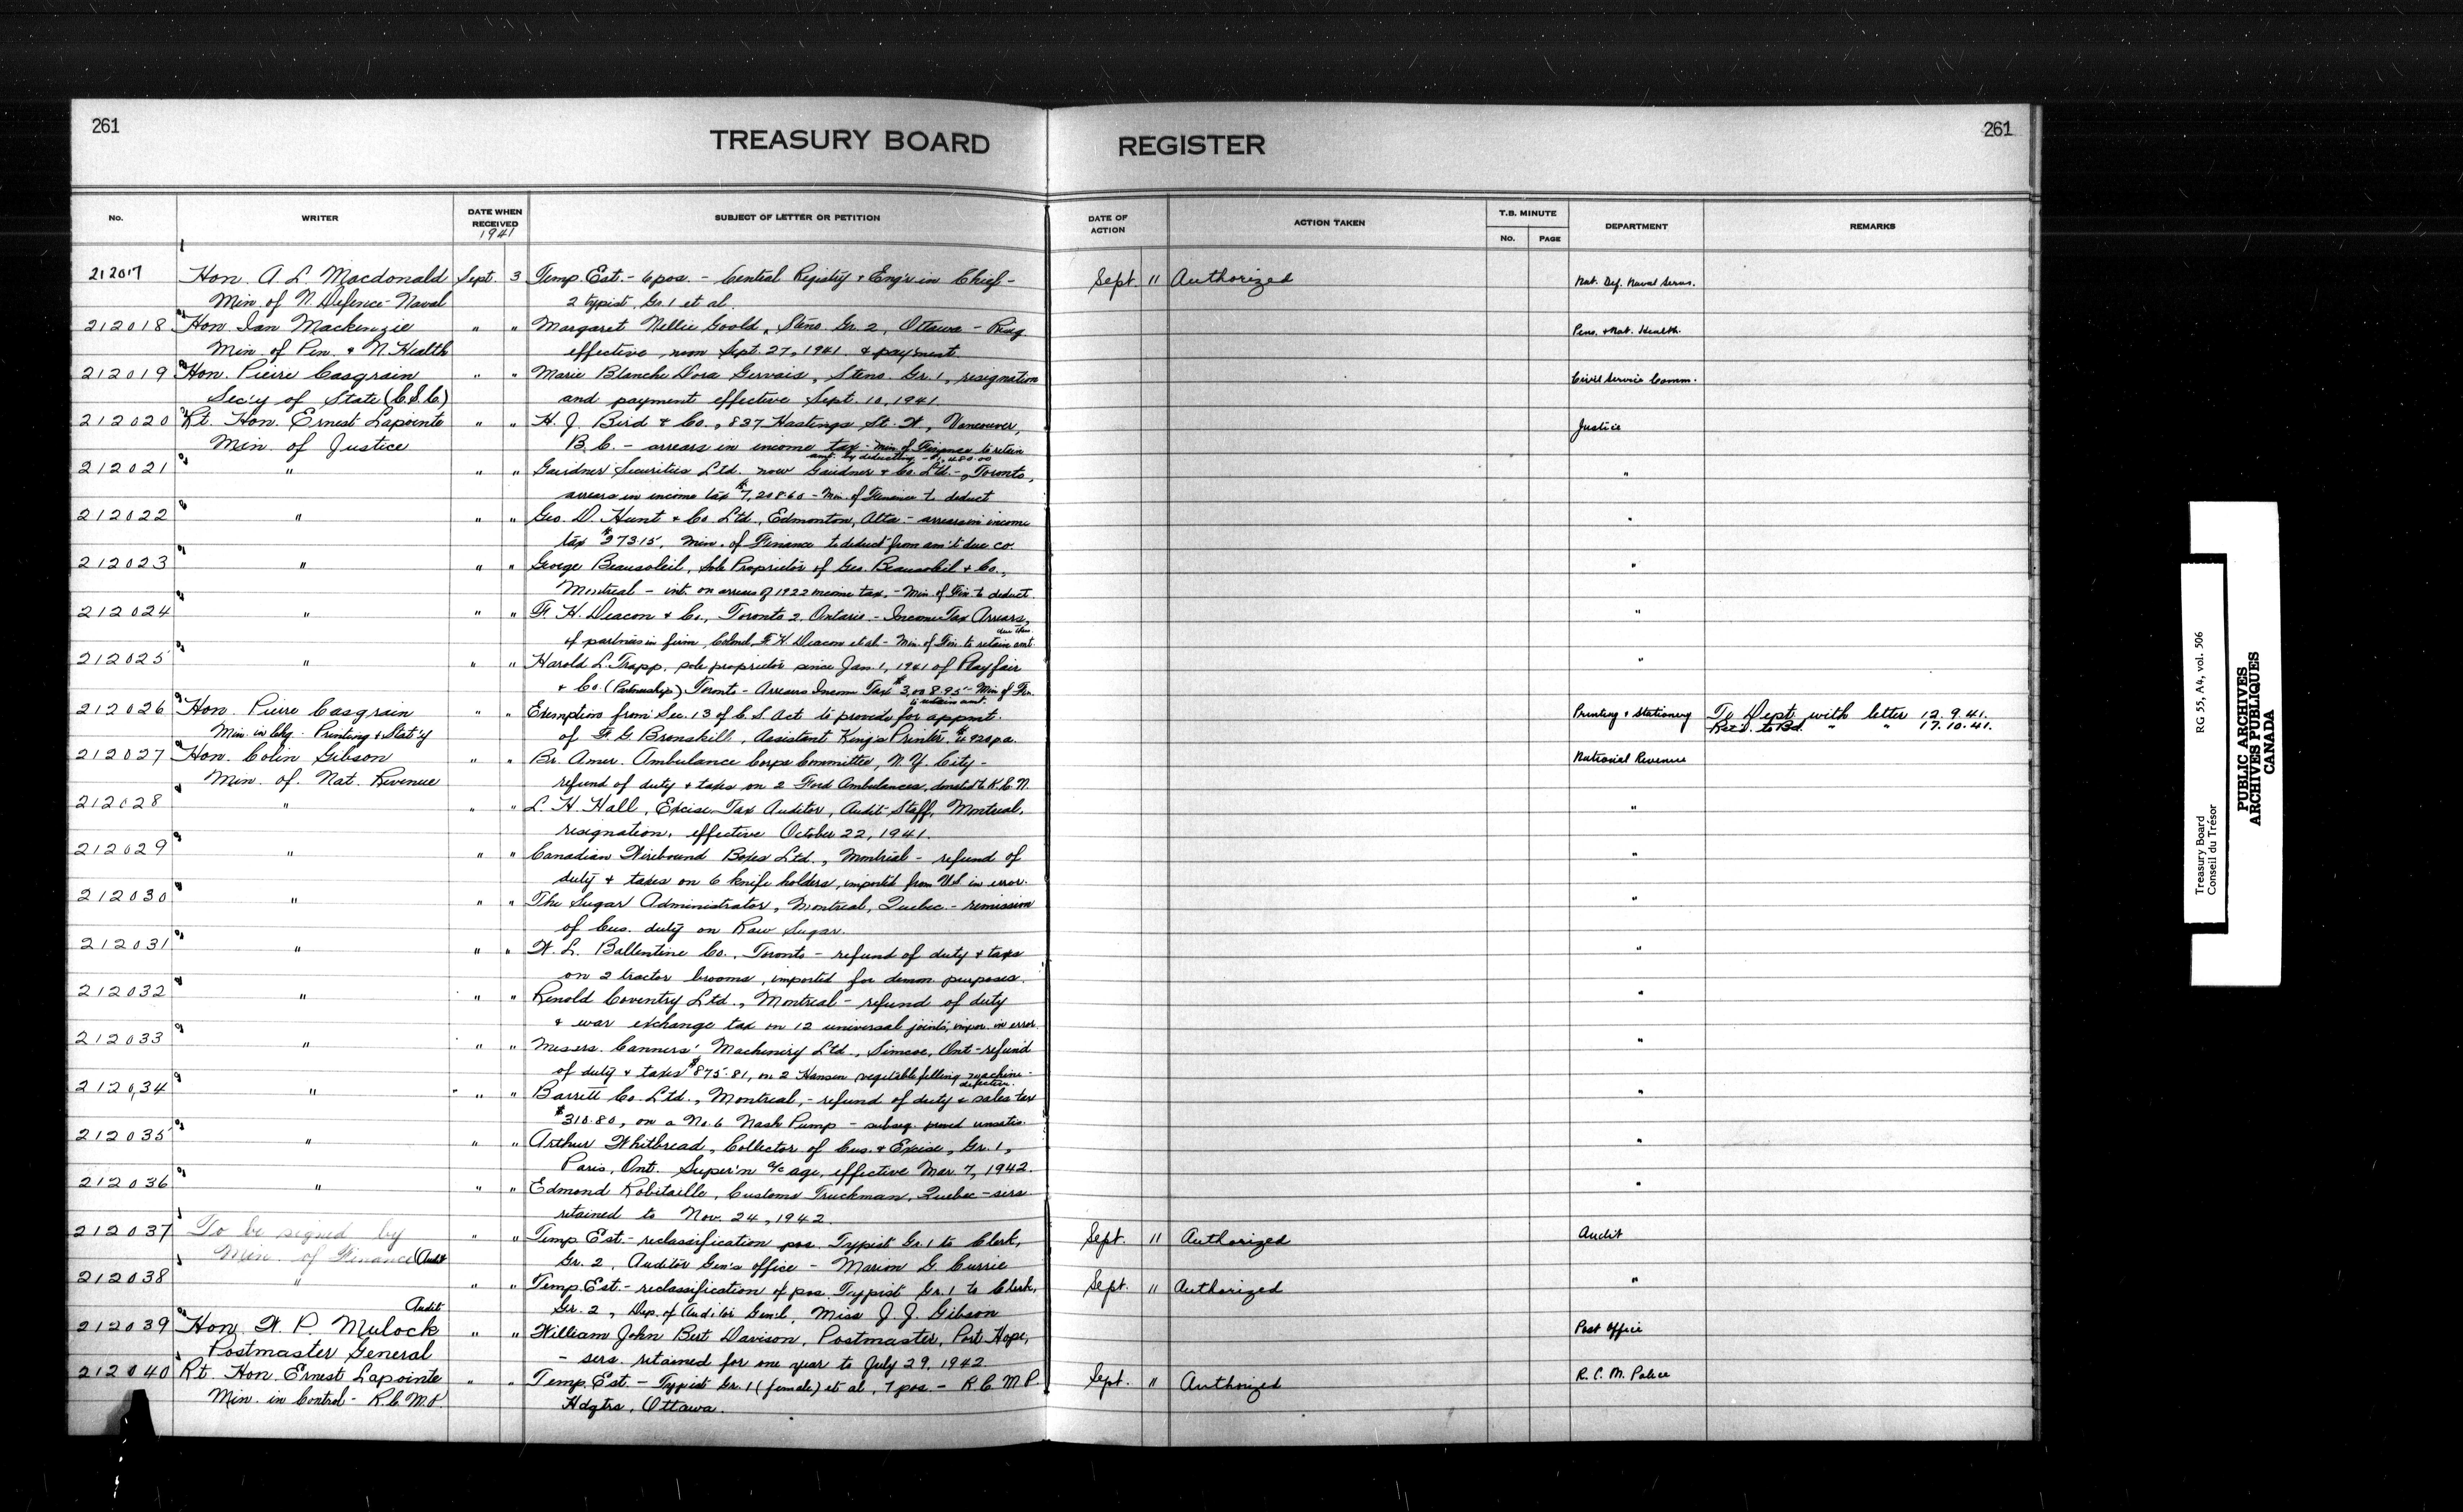 261
TREASURY BOARD REGISTER
261
No. WRITER DATE WHEN RECEIVED SUBJECT OF LETTER OR PETITION DATE OF ACTION ACTION TAKEN T.B. MINUTE No. PAGE DEPARTMENT REMARKS
1941
212017 Hon. A. L. Macdonald Sept. 3 Temp. Est. - 6 pos. - Central Registry & Eng'r in Chief - Sept. 11 Authorized Nat. Def. Naval Servs.
Min. of N. Defence - Naval 2 typist, Gr. 1 et al.
212018 Hon. Ian Mackenzie " " Margaret Nellie Goold, Steno. Gr. 2, Ottawa - Resig. Pens. & Nat. Health.
Min. of Pen. & N. Health effective, noon Sept. 27, 1941 & payment
212019 Hon. Pierre Casgrain " " Marie Blanche Dora Gervais, Steno. Gr. 1, resignation Civil Service Comm.
Sec'y of State (C.S.C.) and payment effective Sept. 10, 1941
212020 Rt. Hon. Ernest Lapointe " " H. J. Bird & Co., 837 Hastings St. W., Vancouver, Justice
Min. of Justice B.C. - arrears in income tax - Min. of Finance to retain
amt. by deducting - $1,480.00
212021 " " " Gairdner Securities Ltd. now Gairdner & Co. Ltd. -, Toronto, "
arrears in income tax $7,208.60 - Min. of Finance to deduct
212022 " " " Geo. D. Hunt & Co. Ltd., Edmonton, Alta - arrears in income "
tax $273.15, Min. of Finance to deduct from am't due co.
212023 " " " George Beausoleil, Sole Proprietor of Geo. Beausoleil & Co., "
Montreal - int. on arrears of 1922 income tax, - Min. of Fin. to deduct
212024 " " " F. H. Deacon & Co., Toronto 2, Ontario - Income Tax Arrears, "
of partners in firm, Colonel F. H. Deacon et al - Min. of Fin. to retain amt.
due them
212025 " " " Harold L. Trapp, sole proprietor since Jan. 1, 1941 of Playfair "
& Co. (Partnership) Toronto - Arrears Income Tax $3,008.95 - Min. of Fin.
to retain amt.
212026 Hon. Pierre Casgrain " " Exemption from Sec. 13 of C.S. Act to provide for appmt. Printing & Stationery To Dept. with letter 12.9.41.
Min. in Chg. Printing & Stat'y of F. G. Bronskill, Assistant King's Printer. $4920 p.a. Rec'd. to Bd. " " 17.10.41.
212027 Hon. Colin Gibson " " Br. Amer. Ambulance Corps Committee, N.Y. City - National Revenue
Min. of Nat. Revenue refund of duty & taxes on 2 Ford Ambulances, donated to R.C.N.
212028 " " " L. H. Hall, Excise Tax Auditor, Audit Staff, Montreal, "
resignation, effective October 22, 1941.
212029 " " " Canadian Wirebound Boxes Ltd., Montreal - refund of "
duty & taxes on 6 knife holders, imported from U.S. in error.
212030 " " " The Sugar Administrator, Montreal, Quebec - remission "
of Cus. duty on Raw Sugar.
212031 " " " W. L. Ballentine Co., Toronto - refund of duty & taxes "
on 2 tractor brooms, imported for demon. purposes.
212032 " " " Renold Coventry Ltd., Montreal - refund of duty "
& war exchange tax on 12 universal joints, impor. in error.
212033 " " " Messrs. Canners' Machinery Ltd., Simcoe, Ont - refund "
of duty & taxes $875.81, on 2 Hansen vegetable filling machine -
defective.
212034 " " " Barrett Co. Ltd., Montreal, - refund of duty & sales tax "
$318.80, on a No. 6 Nash Pump - subseq. proved unsatis.
212035 " " " Arthur Whitbread, Collector of Cus. & Excise, Gr. 1, "
Paris, Ont. Super'n a/c age, effective Mar. 7, 1942.
212036 " " " Edmond Robitaille, Customs Truckman, Quebec - sers. "
retained to Nov. 24, 1942.
212037 To be signed by " " Temp. Est. - reclassification pos. Typist Gr. 1 to Clerk, Sept. 11 Authorized Audit
Min. of Finance (Audit Gr. 2, Auditor Gen's office - Marion G. Currie
212038 " " " Temp. Est. - reclassification of pos. Typist Gr. 1 to Clerk, Sept. 11 Authorized "
Audit Gr. 2, Dep. of Auditor Gen'l, Miss J. J. Gibson
212039 Hon. W. P. Mulock " " William John Bert Davison, Postmaster, Port Hope, Post Office
Postmaster General - sers. retained for one year to July 29, 1942
212040 Rt. Hon. Ernest Lapointe " " Temp. Est. - Typist Gr. 1 (female) et al, 7 pos. - R.C.M.P. Sept. 11 Authorized R.C.M. Police
Min. in Control - R.C.M.P. Hdqtrs, Ottawa.
Treasury Board RG 55, A4, vol. 506
Conseil du Trésor
PUBLIC ARCHIVES
ARCHIVES PUBLIQUES
CANADA